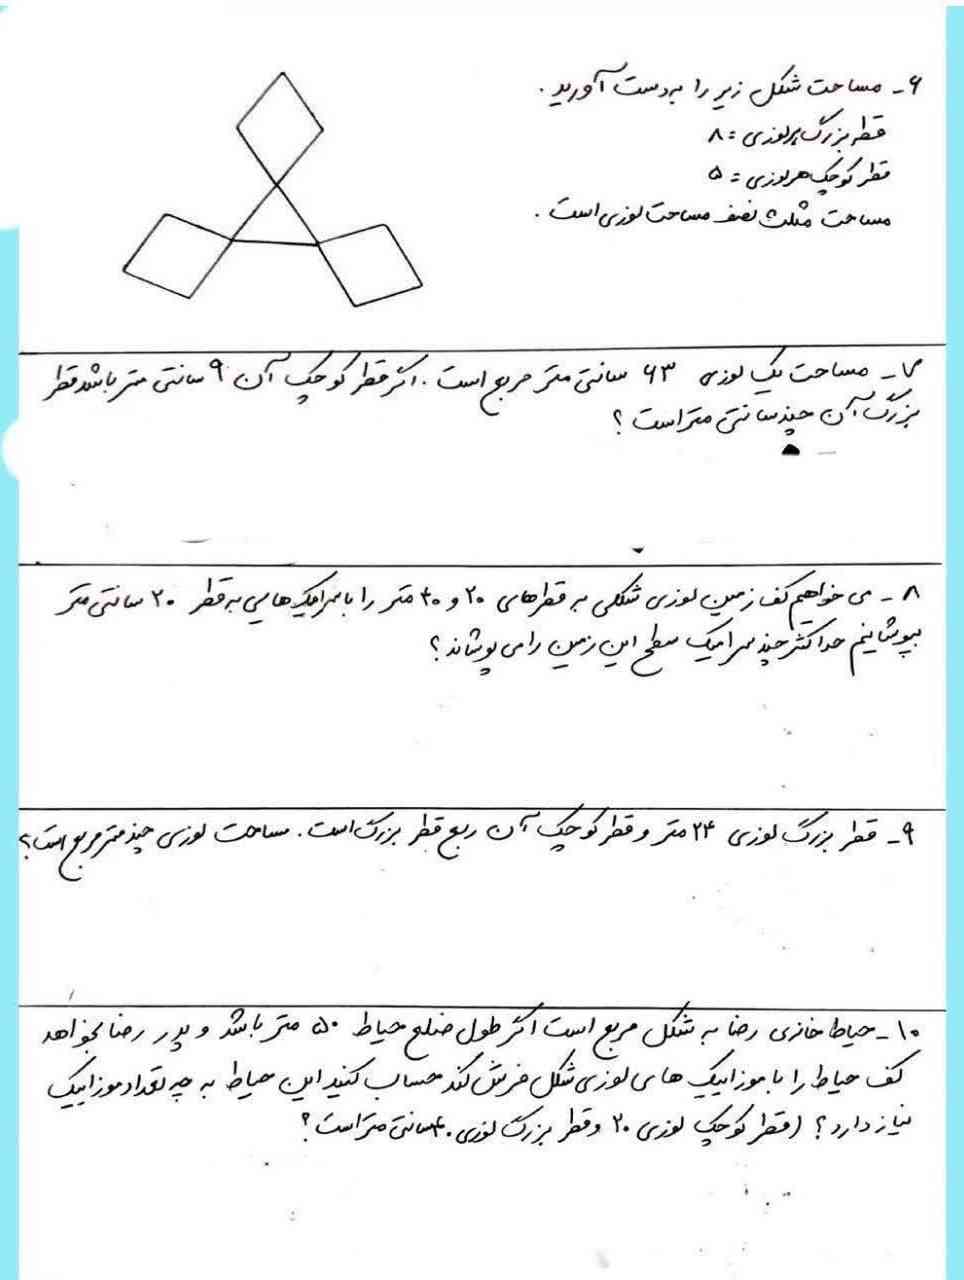 ۶ـ مساحت شکل زیر را به‌دست آورید .
قطر بزرگ هر لوزی = ۸
قطر کوچک هر لوزی = ۵
مساحت مثلث نصف مساحت لوزی است .
۷ـ مساحت یک لوزی ۶۳ سانتی متر مربع است . اگر قطر کوچک آن ۹ سانتی متر باشد قطر
بزرگ آن چند سانتی متر است ؟
۸ـ می خواهیم کف زمین لوزی شکلی به قطرهای ۲۰ و ۴۰ متر را با سرامیک هایی به قطر ۲۰ سانتی متر
بپوشانیم حداکثر چند سرامیک سطح این زمین را می پوشاند ؟
۹ـ قطر بزرگ لوزی ۲۴ متر و قطر کوچک آن ربع قطر بزرگ است . مساحت لوزی چند متر مربع است ؟
۱۰ـ حیاط خانه‌ی رضا به شکل مربع است اگر طول ضلع حیاط ۵۰ متر باشد و پدر رضا بخواهد
کف حیاط را با موزاییک های لوزی شکل فرش کند حساب کنید این حیاط به چه تعداد موزاییک
نیاز دارد ؟ (قطر کوچک لوزی ۲۰ و قطر بزرگ لوزی ۴۰ سانتی متر است ؟